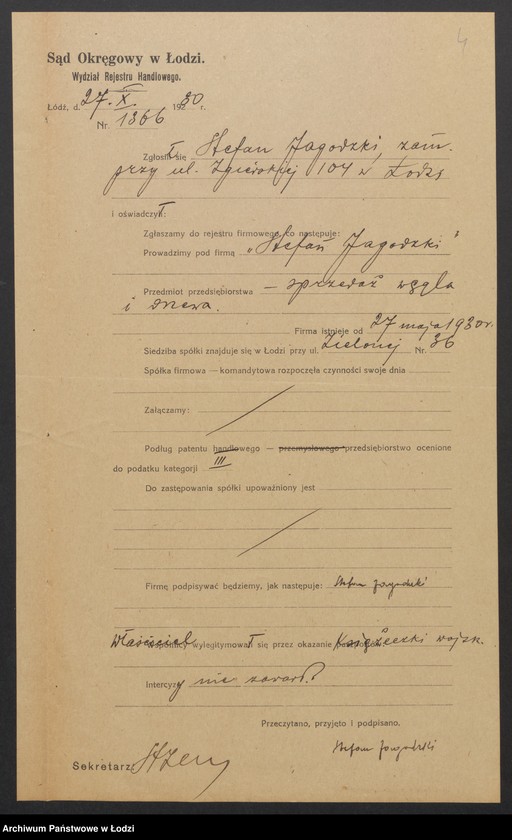 4
Sąd Okręgowy w Łodzi.
Wydział Rejestru Handlowego.
Łódź, d. 27. X. 1930 r.
Nr. 1366
Zgłosił się Stefan Jagodzki, zam.
przy ul. Zgierskiej 104 w Łodzi
i oświadczył:
Zgłaszamy do rejestru firmowego, co następuje:
Prowadzimy pod firmą „Stefan Jagodzki"
Przedmiot przedsiębiorstwa — sprzedaż węgla
i drzewa.
Firma istnieje od 27 maja 1930 r.
Siedziba spółki znajduje się w Łodzi przy ul. Zielonej Nr. 36
Spółka firmowa — komandytowa rozpoczęła czynności swoje dnia
Załączamy:
Podług patentu handlowego — przemysłowego przedsiębiorstwo ocenione
do podatku kategorji III
Do zastępowania spółki upoważniony jest
Firmę podpisywać będziemy, jak następuje: Stefan Jagodzki
Właściciel wylegitymował się przez okazanie książeczki wojsk.
Intercyzy nie zawarł.
Przeczytano, przyjęto i podpisano.
Stefan Jagodzki
Sekretarz
Archiwum Państwowe w Łodzi